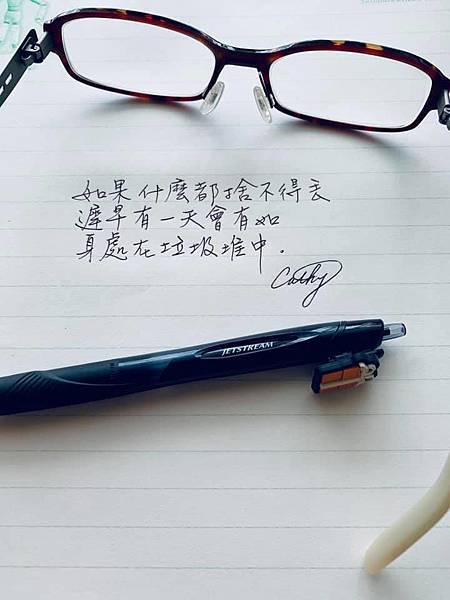 如果什麼都捨不得丟
遲早有一天會有如
身處在垃圾堆中.
Cathy
JETSTREAM